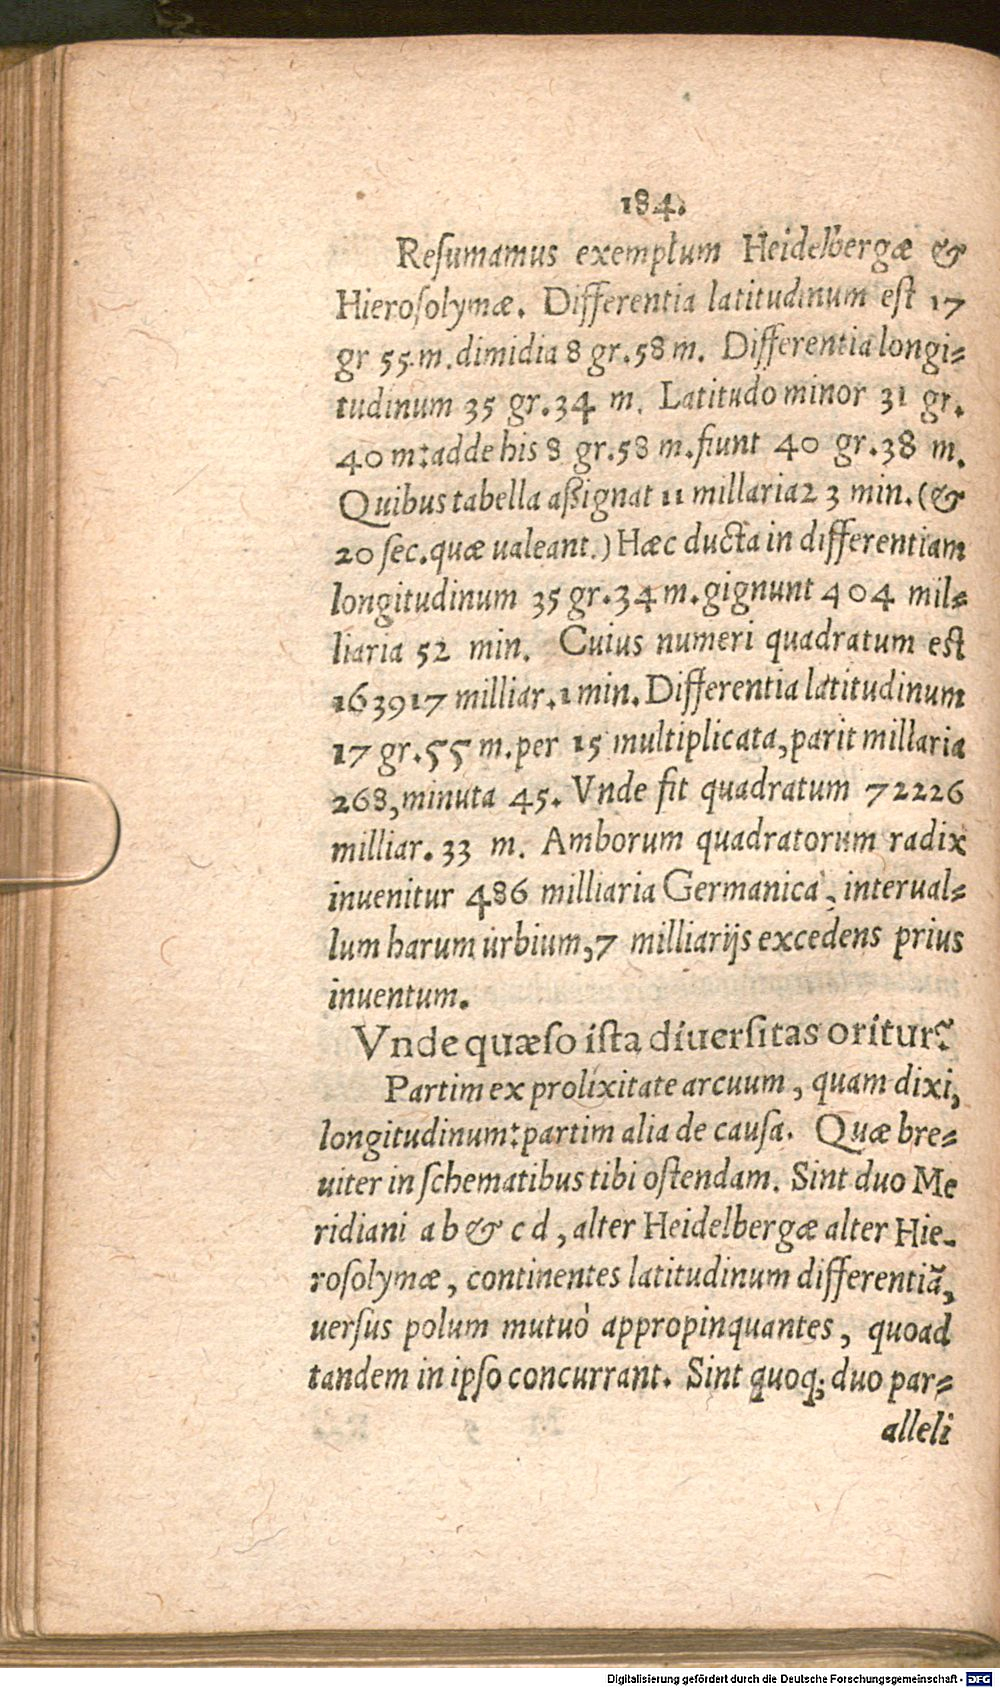 184.
Reſumamus exemplum Heidelbergæ &
Hieroſolymæ. Differentia latitudinum eſt 17
gr 55.m.dimidia 8 gr.58 m. Differentia longi⸗
tudinum 35 gr.34 m. Latitudo minor 31 gr.
40 m:adde his 8 gr.58 m.fiunt 40 gr.38 m.
Quibus tabella aßignat 11 millaria 2 3 min.(&
20 ſec.quæ ualeant.) Hæc ducta in differentiam
longitudinum 35 gr.34 m.gignunt 404 mil⸗
liaria 52 min. Cuius numeri quadratum eſt
163917 milliar.1 min. Differentia latitudinum
17 gr.55 m.per 15 multiplicata,parit millaria
268,minuta 45. Vnde fit quadratum 72226
milliar.33 m. Amborum quadratorum radix
inuenitur 486 milliaria Germanica, interual⸗
lum harum urbium,7 milliarijs excedens prius
inuentum.
Vnde quæſo iſta diuerſitas oritur?
Partim ex prolixitate arcuum, quam dixi,
longitudinum:partim alia de cauſa. Quæ bre⸗
uiter in ſchematibus tibi oſtendam. Sint duo Me
ridiani a b & c d, alter Heidelbergæ alter Hie-
roſolymæ, continentes latitudinum differentiã,
uerſus polum mutuò appropinquantes, quoad
tandem in ipſo concurrant. Sint quoq; duo par⸗
alleli
Digitalisierung gefördert durch die Deutsche Forschungsgemeinschaft - DFG